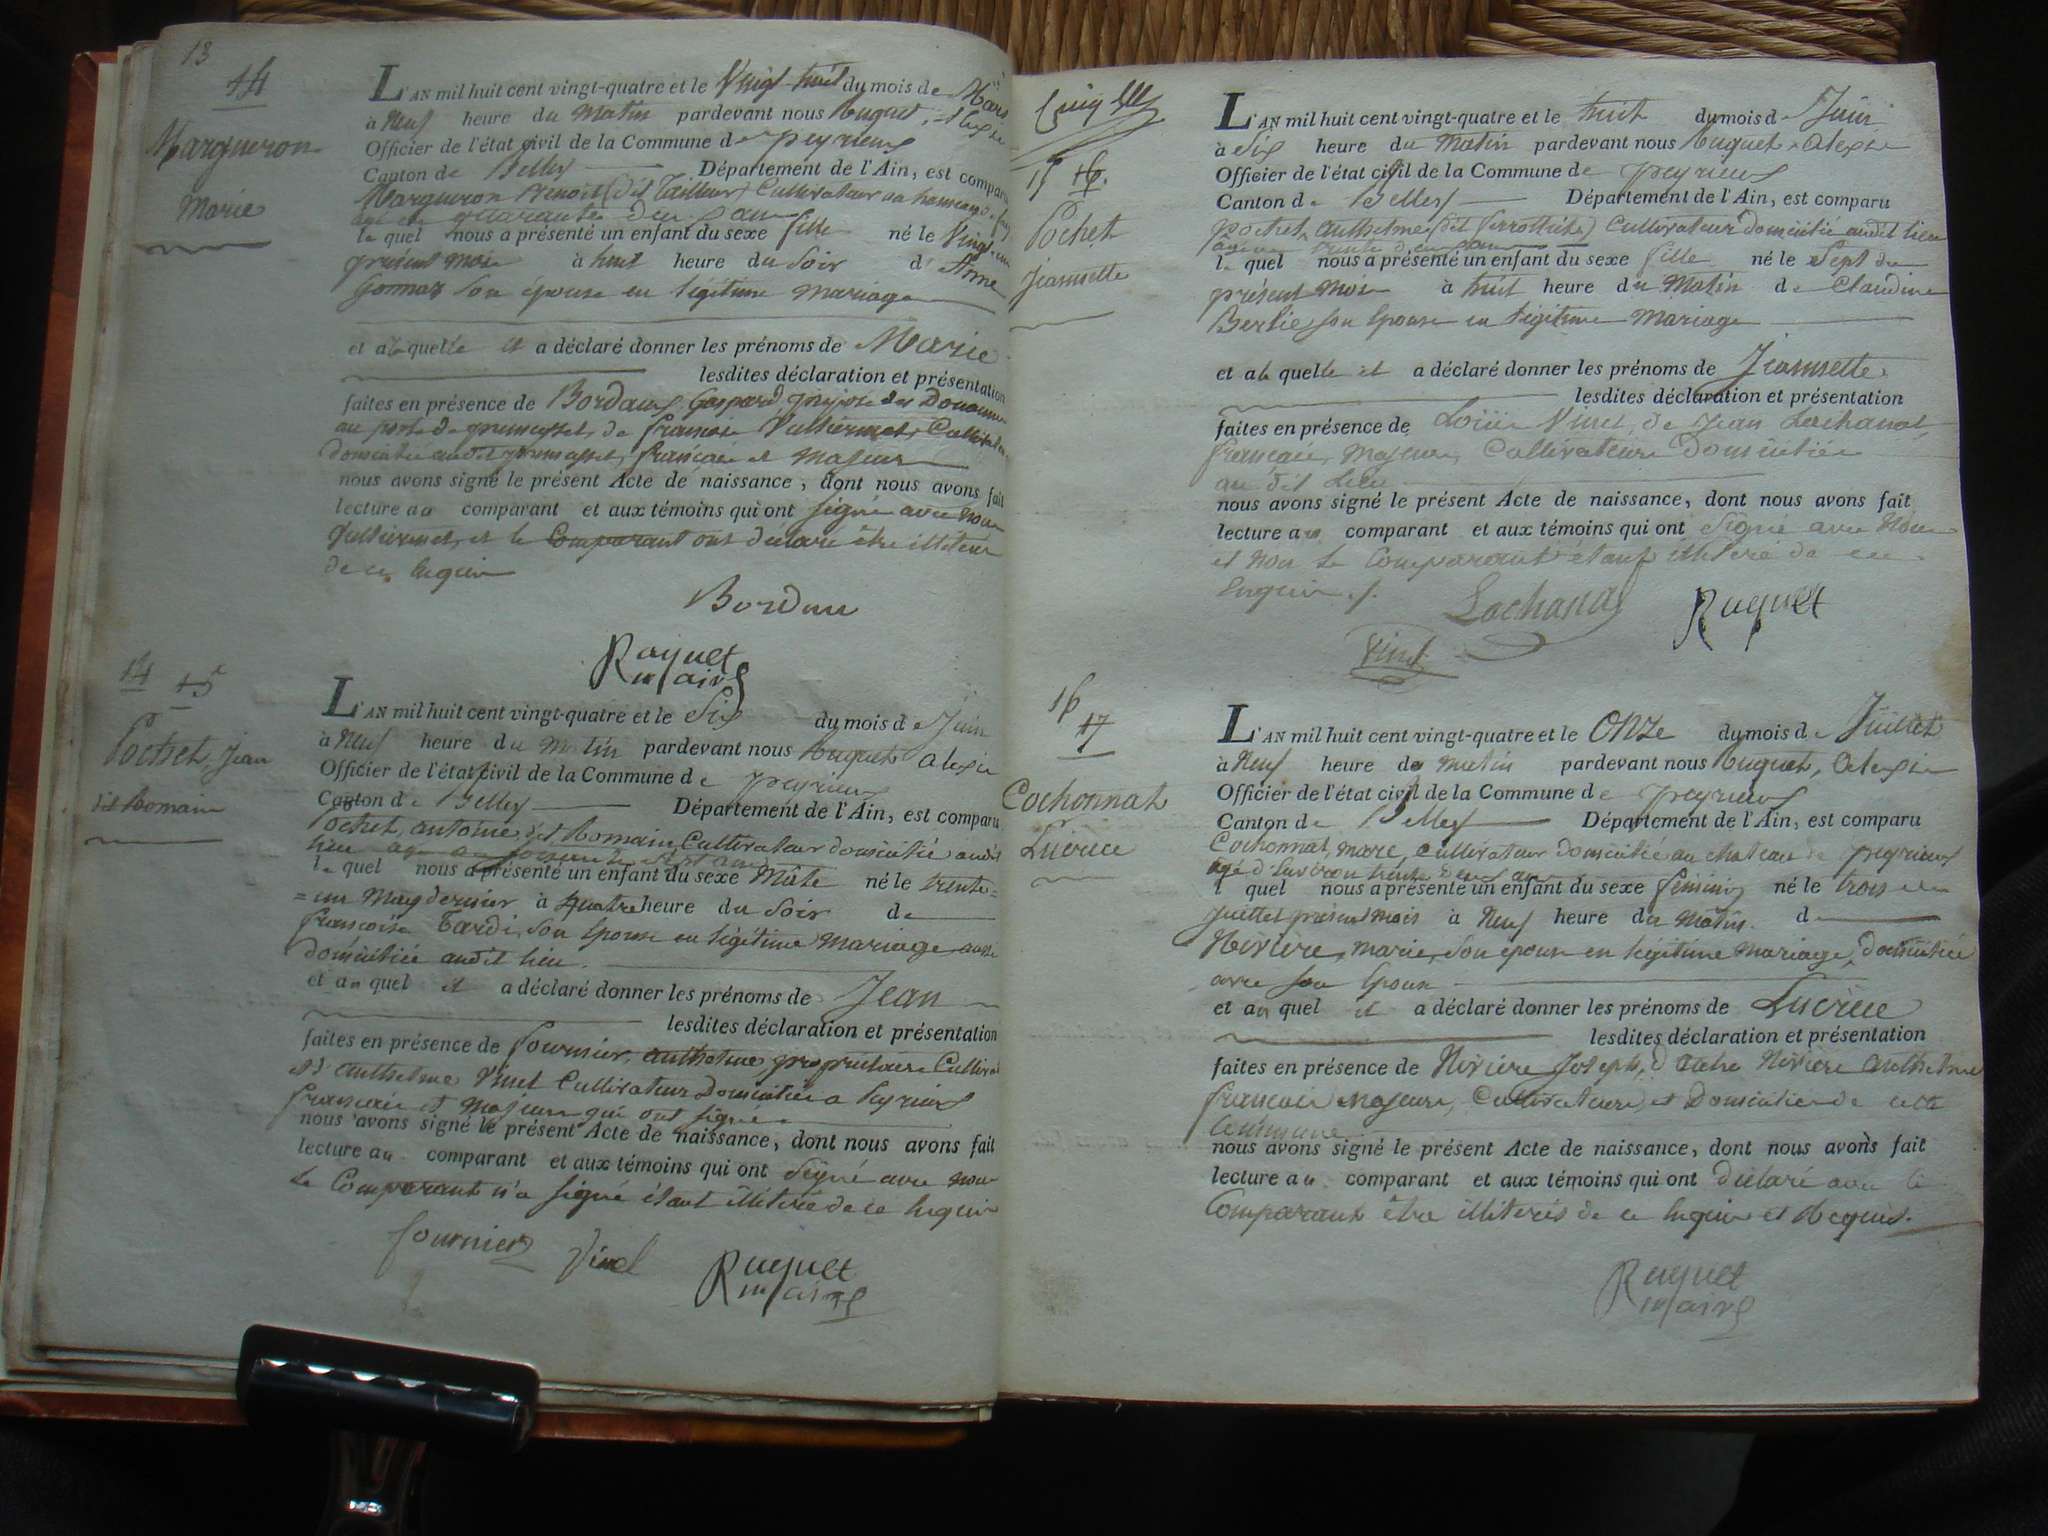 13
14
Margueron
Marie
L'AN mil huit cent vingt-quatre et le Vingt huit du mois de Mars
à Neuf heure du Matin pardevant nous Ruquet
Officier de l'état civil de la Commune de peyrieux
Canton de Belley Département de l'Ain, est comparu
Margueron Benoit (dit Tailleur) Cultivateur au hameau
agé de quarante deux ans
le quel nous a présenté un enfant du sexe fille né le Vingt
présent mois à huit heure du Soir d' Anne
son épouse en légitime mariage
et a laquelle il a déclaré donner les prénoms de Marie
lesdites déclaration et présentation
faites en présence de Bordaux Gaspard préposé des Douannes
au poste de de francois Vulliermet, Cultivateur
domicilié audit francais et majeur
nous avons signé le présent Acte de naissance, dont nous avons fait
lecture au comparant et aux témoins qui ont signé avec nous
Vulliermet, et le Comparant ont déclaré être illiteré
de ce requis
Bordau
Ruquet
maire
14 15
Pochet, Jean
dit Romain
L'AN mil huit cent vingt-quatre et le Six du mois de Juin
à Neuf heure du Matin pardevant nous Ruquet alexis
Officier de l'état civil de la Commune de peyrieux
Canton de Belley Département de l'Ain, est comparu
Pochet, antoine dit Romain, Cultivateur domicilié audit
lieu agé de sept ans
le quel nous a présenté un enfant du sexe Mâle né le trente
= un May dernier à quatre heure du Soir de
françoise Tardi, son épouse en légitime mariage, aussi
domiciliée audit lieu.
et au quel il a déclaré donner les prénoms de Jean
lesdites déclaration et présentation
faites en présence de fournier, anthelme, propriétaire Cultivat
et d'anthelme Vinet Cultivateur Domiciliés a Peyrieux
francais et majeurs qui ont signé.
nous avons signé le présent Acte de naissance, dont nous avons fait
lecture au comparant et aux témoins qui ont signé avec nous
le Comparant n'a signé étant illiteré de ce requis
fournier Vinet Ruquet
maire
15 16.
Pochet
Jeannette
L'AN mil huit cent vingt-quatre et le huit du mois de Juin
à Six heure du Matin pardevant nous Ruquet, alexis
Officier de l'état civil de la Commune de peyrieux
Canton de Belley Département de l'Ain, est comparu
pochet, anthelme (dit ) Cultivateur domicilié audit lieu
agé de trente deux ans
le quel nous a présenté un enfant du sexe fille né le Sept du
présent mois à huit heure du Matin de Claudine
Berlie, son épouse en légitime mariage
et a la quelle il a déclaré donner les prénoms de Jeannette.
lesdites déclaration et présentation
faites en présence de Louis Vinet, de Jean Lachanat,
francais, majeurs, Cultivateurs Domiciliés
audit Lieu
nous avons signé le présent Acte de naissance, dont nous avons fait
lecture au comparant et aux témoins qui ont signé avec nous
et non le Comparant étant illiteré de ce
requis./.
Lachanal Ruquet
Vinet
16
17
Cochonnat
Lucrèce
L'AN mil huit cent vingt-quatre et le ONZe du mois de Juillet
à Neuf heure du matin pardevant nous Ruquet, Alexis
Officier de l'état civil de la Commune de peyrieux
Canton de Belley Département de l'Ain, est comparu
Cochonnat, marc, cultivateur domicilié au chateau de peyrieux
agé d'Environ trente deux ans
l quel nous a présenté un enfant du sexe féminin né le trois du
juillet présent mois à Neuf heure du Matin. de
Nivière, marie, son épouse en légitime mariage, domiciliée
avec son époux
et au quel il a déclaré donner les prénoms de Lucrèce
lesdites déclaration et présentation
faites en présence de Nivière Joseph, d'autre Nivière anthelme
francais majeurs, Cultivateurs, et Domiciliés de cette
Commune
nous avons signé le présent Acte de naissance, dont nous avons fait
lecture au comparant et aux témoins qui ont déclaré avec le
Comparant être illiterés de ce Enquis et Requis.
Ruquet
maire